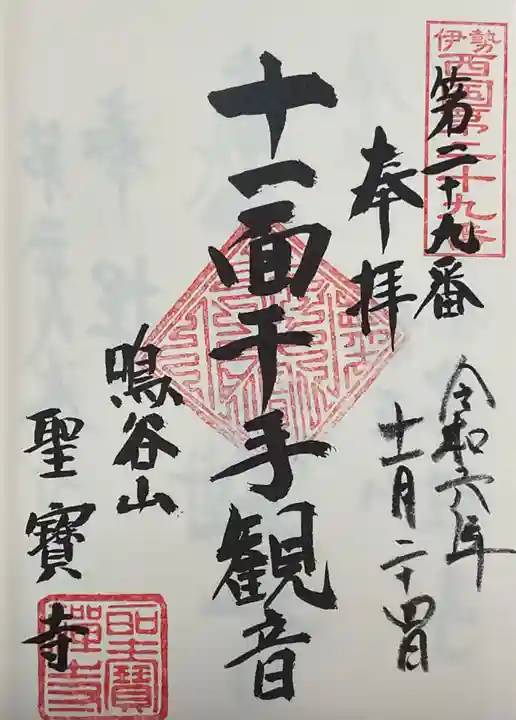 伊勢
西国第二十九番
第二十九番
奉拝
令和六年
十一月二十四日
十一面千手観音
鳴谷山
聖寶寺
聖寶
禅寺